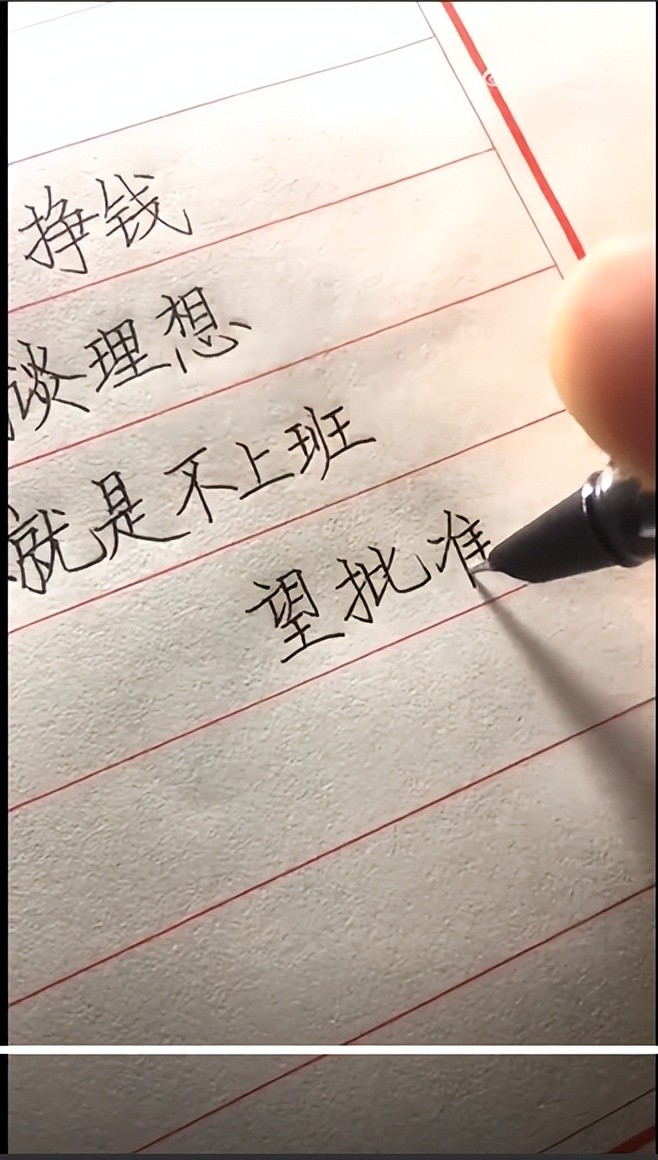 挣钱
谈理想
就是不上班
望批准